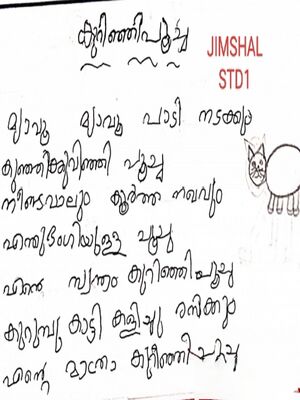 കുറിഞ്ഞിപൂച്ച
JIMSHAL
STD1
മ്യാവൂ മ്യാവൂ പാടി നടക്കും
കുഞ്ഞിക്കുറിഞ്ഞി പൂച്ച
നീണ്ടവാലും കൂർത്ത നഖവും
എന്തുഭംഗിയുള്ള പൂച്ച
എന്റെ സ്വന്തം കുറിഞ്ഞിപൂച്ച
കുറുമ്പു കാട്ടി കളിച്ചു രസിക്കും
എന്റെ കുറിഞ്ഞിപൂച്ച